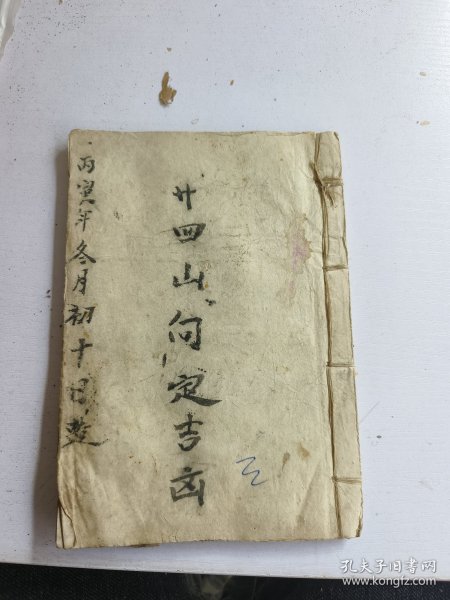 廿四山向定吉凶
丙寅年冬月初十日
三
孔夫子旧书网
www.kongfz.com